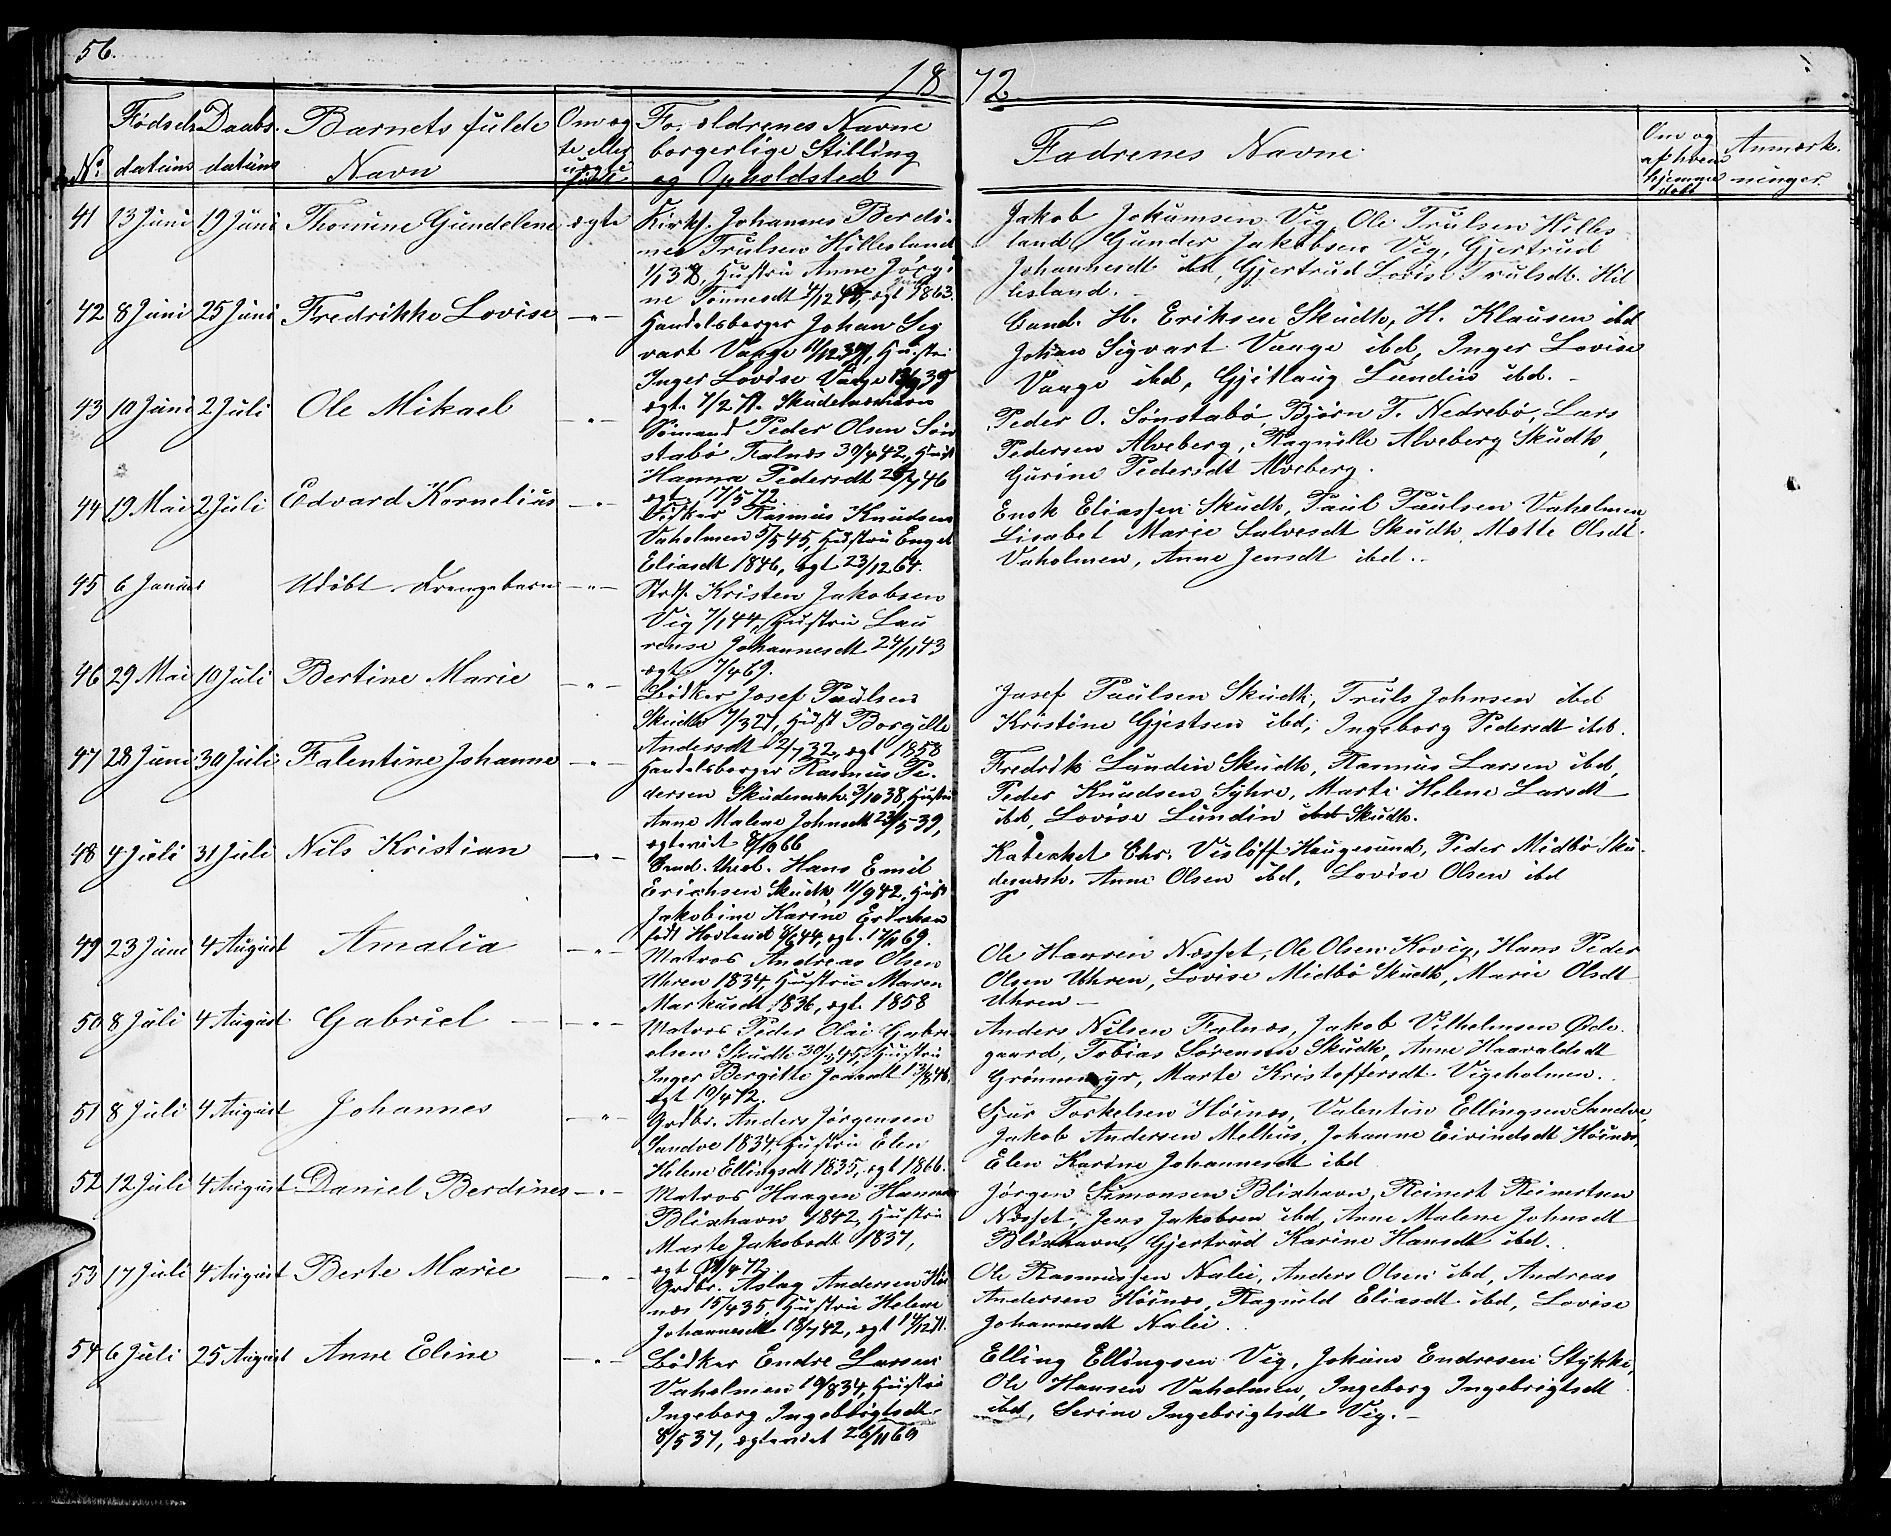 56.
18 72.
No. Fødsels datum Daabs. datum Barnets fulde Navn Om ægte eller Forældrenes Navne borgerlige Stilling og Opholdsted
Fadrenes Navne. Om og af hvem hjemmedøbt Anmærkninger.
41 13 Juni 19 Juni Thomine Gundelene ægte
Kirks. Johannes Berdi-
nes Trulsen Hillesland
Hustru Anne Jørgi
ne Tønnesdt ægt 1863.
Jakob Jokumsen Vig, Ole Trulsen Hilles
land, Gunder Jakobsen Vig, Gjertrud
Johannesdt ibd, Gjertrud Lovise Trulsdt. Hil
lesland.
42 8 Juni 25 Juni Fredrikke Lovise — " —
Handelsborger Johan Sig
vart Vaage Hustru
Inger Lovise Vaage
ægt. 7/2 71. Skudesneshavn
Cand. H. Eriksen Skudh, H. Klausen ibd
Johan Sigvart Vaage ibd, Inger Lovise
Vaage ibd, Gjitlaug Lundin ibd. -
43 10 Juni 2 Juli Ole Mikael — " —
Sømand Peder Olsen Søn
stabø Falnæs 30/4 42, Hust
Hanna Pedersdt
ægt. 17/5 72.
Peder O. Sønstabø, Bjørn T. Nedrebø, Lars
Pedersen Alveberg, Ragnille Alveberg Skudh,
Gurine Pedersdt Alveberg.
44 19 Mai 2 Juli Edvard Kornelius — " —
Fisker Rasmus Knudsen
Vaholmen 5/5 45, Hustru Engel
Eliasdt 1846, ægt 23/12 64.
Enok Eliassen Skudh, Paul Paulsen Vaholmen
Lisabet Marie Salvesdt Skudh, Mette Olsdt.
Vaholmen, Anne Jensdt ibd..
45 6 Januar Udøbt Drengebarn — " —
Strds. Kristen Jakobsen
Vig 7/1 44, Hustru Lau
rense Johannesdt 24/11 43
ægt. 7/4 69.
46 29 Mai 10 Juli Bertine Marie — " —
Bødker Josef Paulsen
Skudh 7/3 27, Hust Borgille
Andersdt 12/7 32, ægt 1858
Josef Paulsen Skudh, Truls Johnsen ibd
Kristine Gjestsen ibd, Ingeborg Pedersdt ibd.
47 28 Juni 30 Juli Falentine Johanne — " —
Handelsborger Rasmus Pe-
dersen Skudesnesh. 3/10 38, Hustru
Anne Malene Johnsdt 23/5 39,
ægteviet
Fredrik Lundin Skudh, Rasmus Larsen ibd,
Peder Knudsen Syhre, Marte Helene Larsdt
ibd, Lovise Lundin ibd Skudh.
48 4 Juli 31 Juli Nils Kristian — " —
Cand. theol. Hans Emil
Erichsen Skudh, 11/9 42, Hust
Jakobine Karine Erichsen
født ægt.
Kateket Chr. Visløff Haugesund, Peder Midbø Sku-
desnesh. Anne Olsen ibd, Lovise Olsen ibd
49 23 Juni 4 August Amalia — " —
Matros Andreas Olsen
Uhren 1834, Hustru Maren
Markusdt. 1836, ægt. 1858
Ole Hansen Næsset, Ole Olsen Kovig, Hans Peder
Olsen Uhren, Lovise Midbø Skudh, Marie Olsdt
Uhren —
50 8 Juli 4 August Gabriel — — " —
Matros Peder Olai Gabri
elsen Skudh Hustru
Inger Bergitte Jonasdt
ægt 19/4 72.
Anders Nilsen Falnæs, Jakob Vilhelmsen Øde-
gaard, Tobias Sørensen Skudh, Anne Haavaldsdt
Grønnemyr, Marte Kristoffersdt. Vigeholmen.
51 8 Juli 4 August Johannes — " —
Grdbr. Anders Jørgensen
Sandve 1834, Hustru Elen
Helene Ellingsdt 1835, ægt 1866.
Sjur Torkelsen Høinæs, Valentin Ellingsen Sandve,
Jakob Andersen Melhus, Johanne Eivindsdt Høinæs,
Elen Karine Johannesdt ibd
52 12 Juli 4 August Daniel Berdines — " —
Matros Haagen Hansen
Blixhavn 1842, Hustru
Marte Jakobsdt 1837,
ægt
Jørgen Simonsen Blixhavn, Reinert Reinertsen
Næsset, Jens Jakobsen ibd, Anne Malene Johnsdt
Blixhavn, Gjertrud Karine Hansdt ibd.
53 17 Juli 4 August Berte Marie — " —
Grdbr. Aslag Andersen Høi
næs 15/4 35, Hustru Helene
Johannesdt 18/7 42, ægt
Ole Rasmussen Nalei, Anders Olsen ibd, Andreas
Andersen Høinæs, Ragnild Eliasdt ibd, Lovise
Johannesdt Nalei.
54 6 Juli 25 August Anne Eline — " —
Bødker Endre Larsen
Vaholmen 19/8 34, Hustru
Ingeborg Ingebrigtsdt.
8/5 37, ægteviet 26/11 60
Elling Ellingsen Vig, Jokum Endresen Stykke,
Ole Hansen Vaholmen, Ingeborg Ingebrigtsdt
ibd, Serine Ingebrigtsdt Vig. —